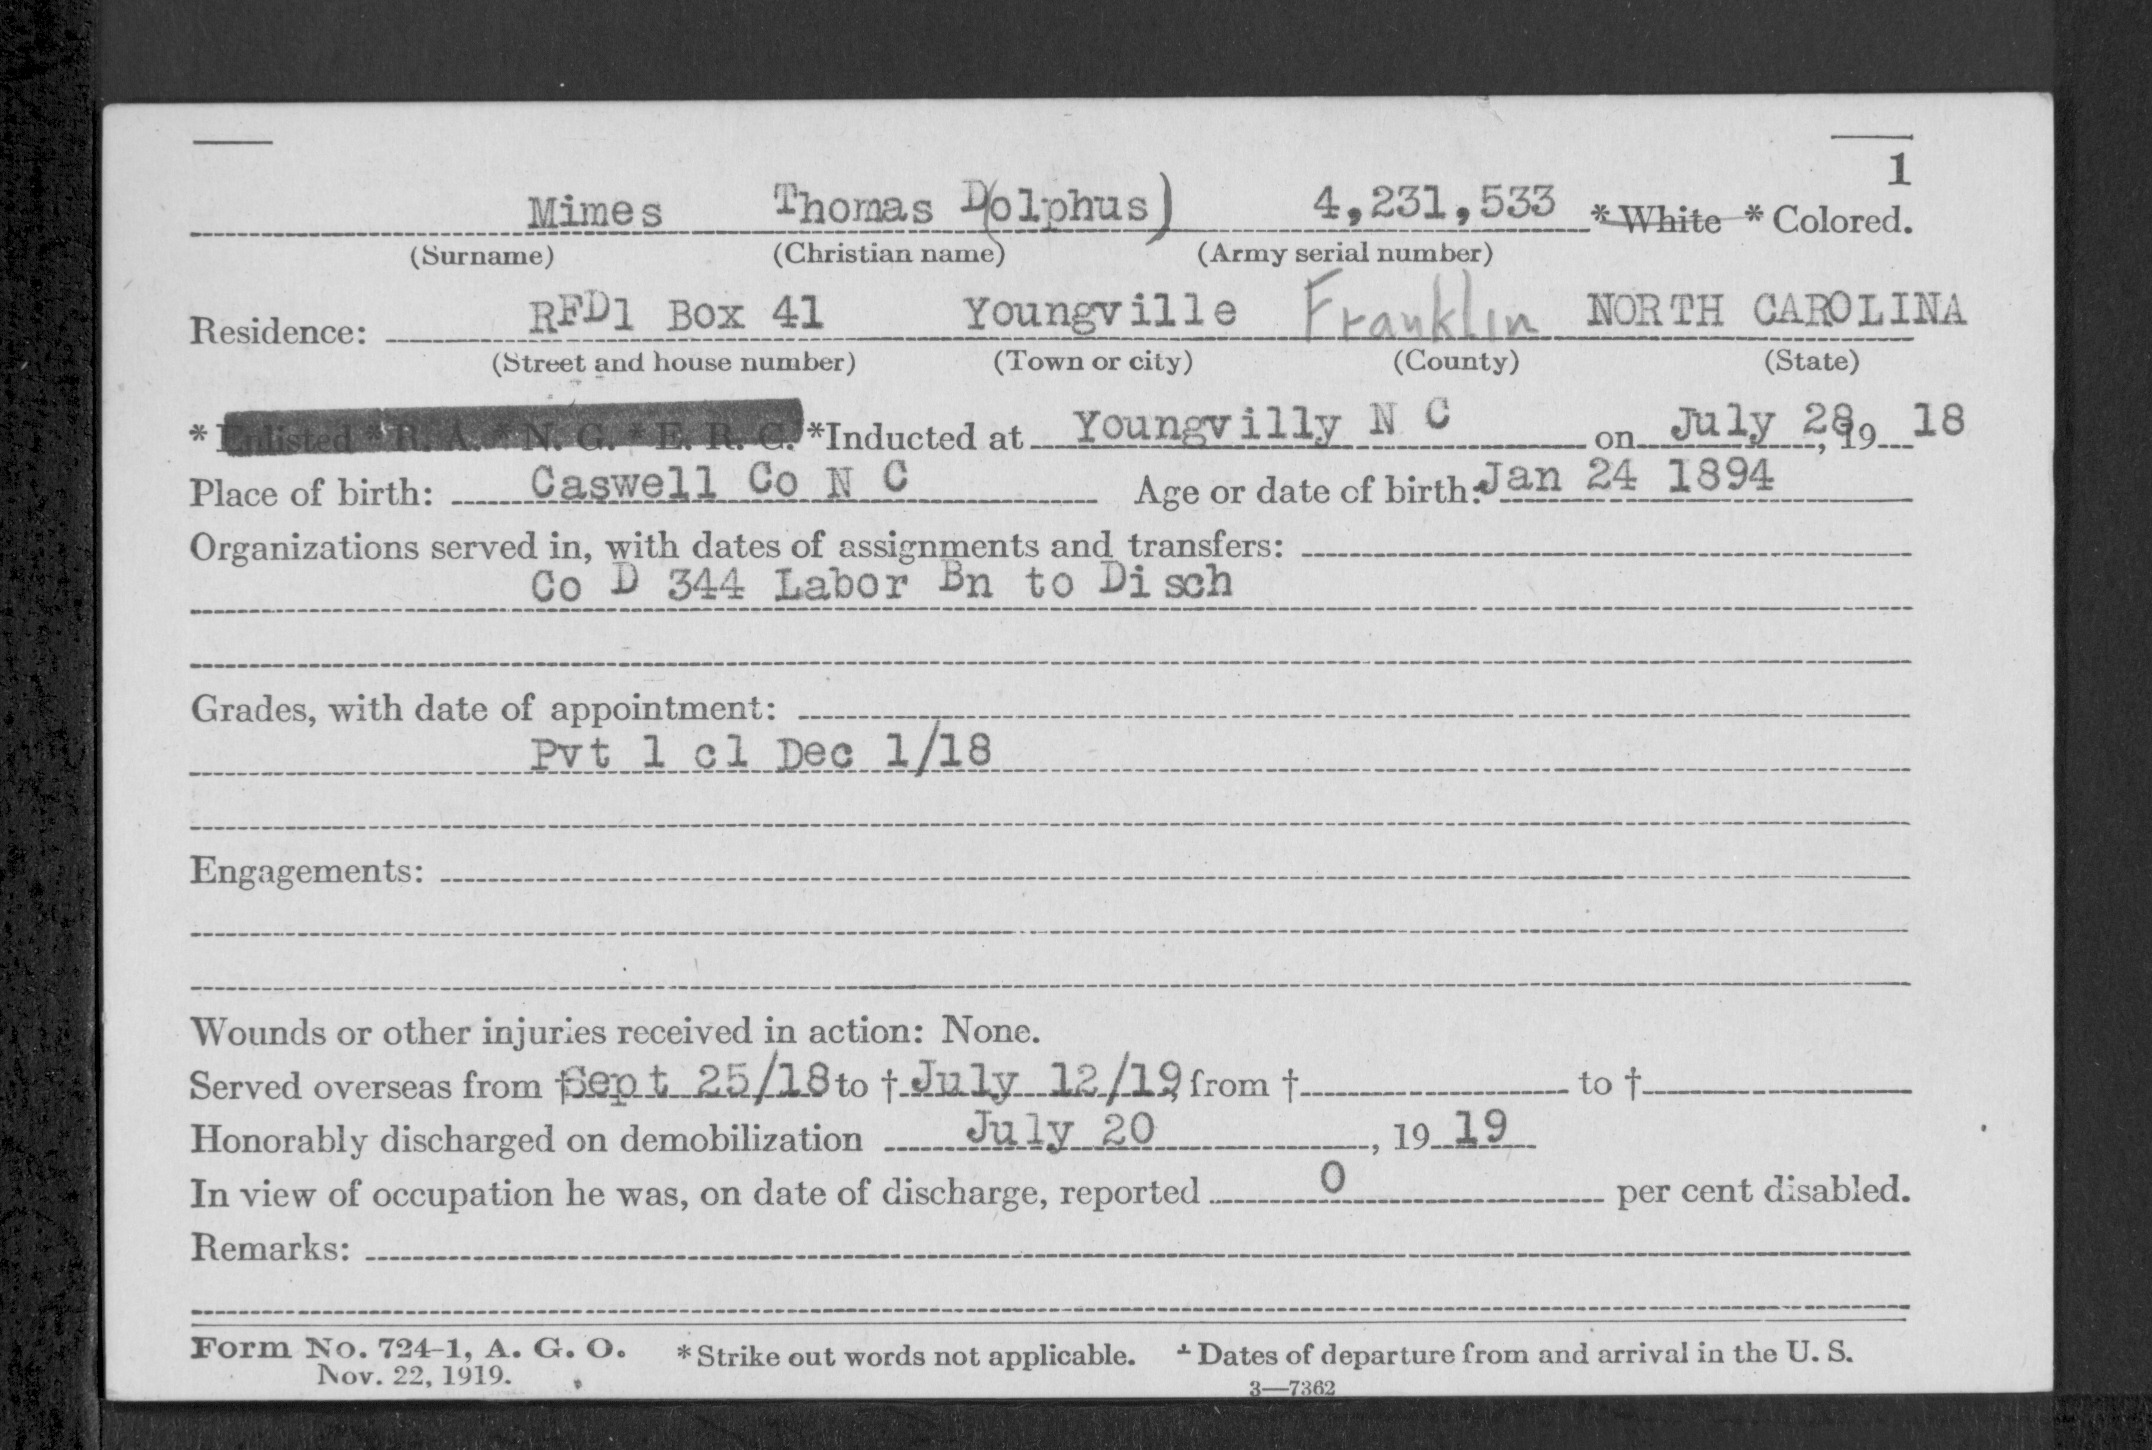 1
Mimes Thomas D(olphus) 4,231,533 * White * Colored.
(Surname) (Christian name) (Army serial number)
Residence: RFD1 Box 41 Youngville Franklin NORTH CAROLINA
(Street and house number) (Town or city) (County) (State)
* Enlisted * R. A. * N. G. * E. R. C. *Inducted at Youngvilly N C on July 28, 19 18
Place of birth: Caswell Co N C Age or date of birth: Jan 24 1894
Organizations served in, with dates of assignments and transfers:
Co D 344 Labor Bn to Disch
Grades, with date of appointment:
Pvt 1 cl Dec 1/18
Engagements:
Wounds or other injuries received in action: None.
Served overseas from † Sept 25/18 to † July 12/19, from † to †
Honorably discharged on demobilization July 20, 19 19
In view of occupation he was, on date of discharge, reported 0 per cent disabled.
Remarks:
Form No. 724-1, A. G. O. *Strike out words not applicable. † Dates of departure from and arrival in the U. S.
Nov. 22, 1919.
3—7362